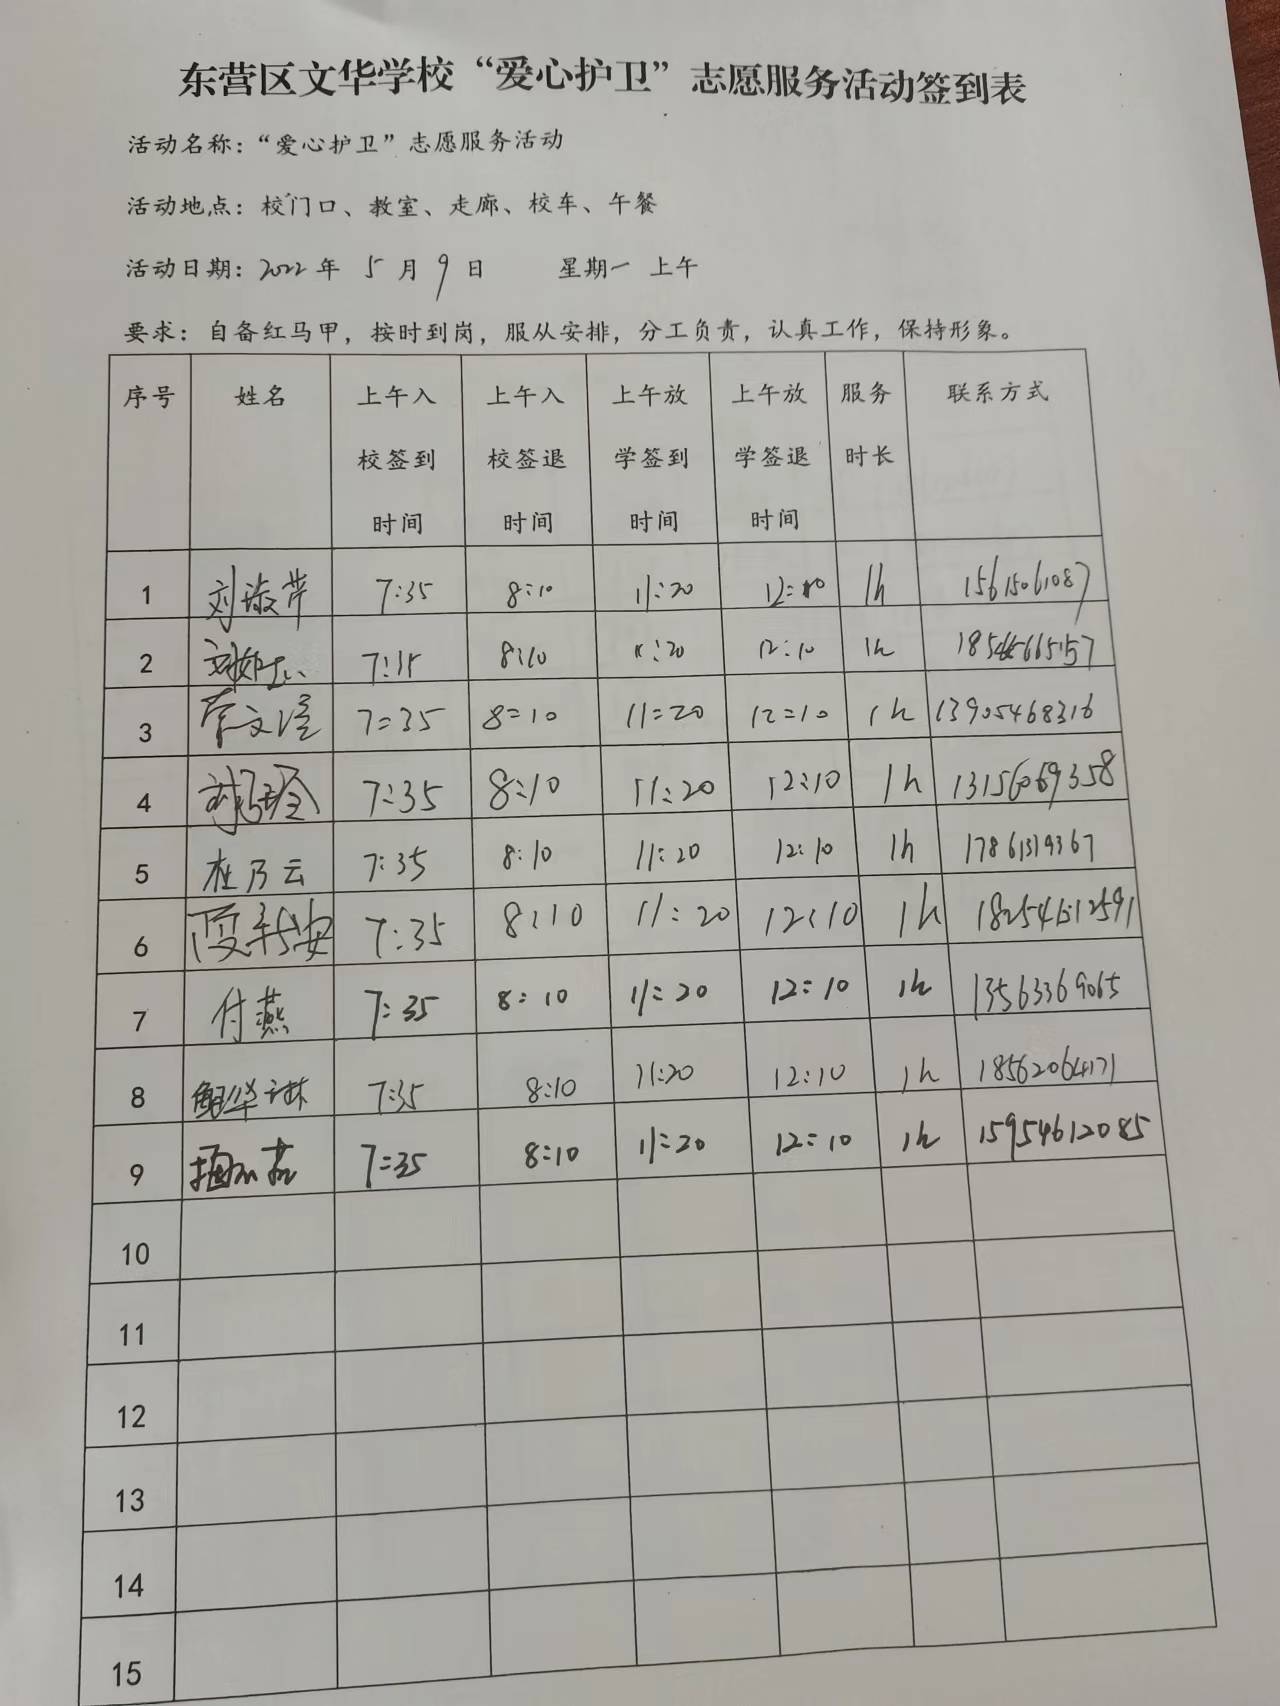 东营区文华学校“爱心护卫”志愿服务活动签到表
活动名称：“爱心护卫”志愿服务活动
活动地点：校门口、教室、走廊、校车、午餐
活动日期：2022年 5月9日 星期一 上午
要求：自备红马甲，按时到岗，服从安排，分工负责，认真工作，保持形象。
序号 姓名 上午入校签到时间 上午入校签退时间 上午放学签到时间 上午放学签退时间 服务时长 联系方式
1 刘淑芹 7:35 8:10 11:20 12:10 1h 15615061087
2 8:10 11:20 12:10 1h
3 7:35 8:10 11:20 12:10 1h 13905468316
4 7:35 8:10 11:20 12:10 1h 13156069358
5 杜乃云 7:35 8:10 11:20 12:10 1h 17861319367
6 7:35 8:10 11:20 12:10 1h 18254612591
7 付燕 7:35 8:10 11:20 12:10 1h 13563369065
8 解华琳 7:35 8:10 11:20 12:10 1h 18562064171
9 7:35 8:10 11:20 12:10 1h 15954612085
10
11
12
13
14
15